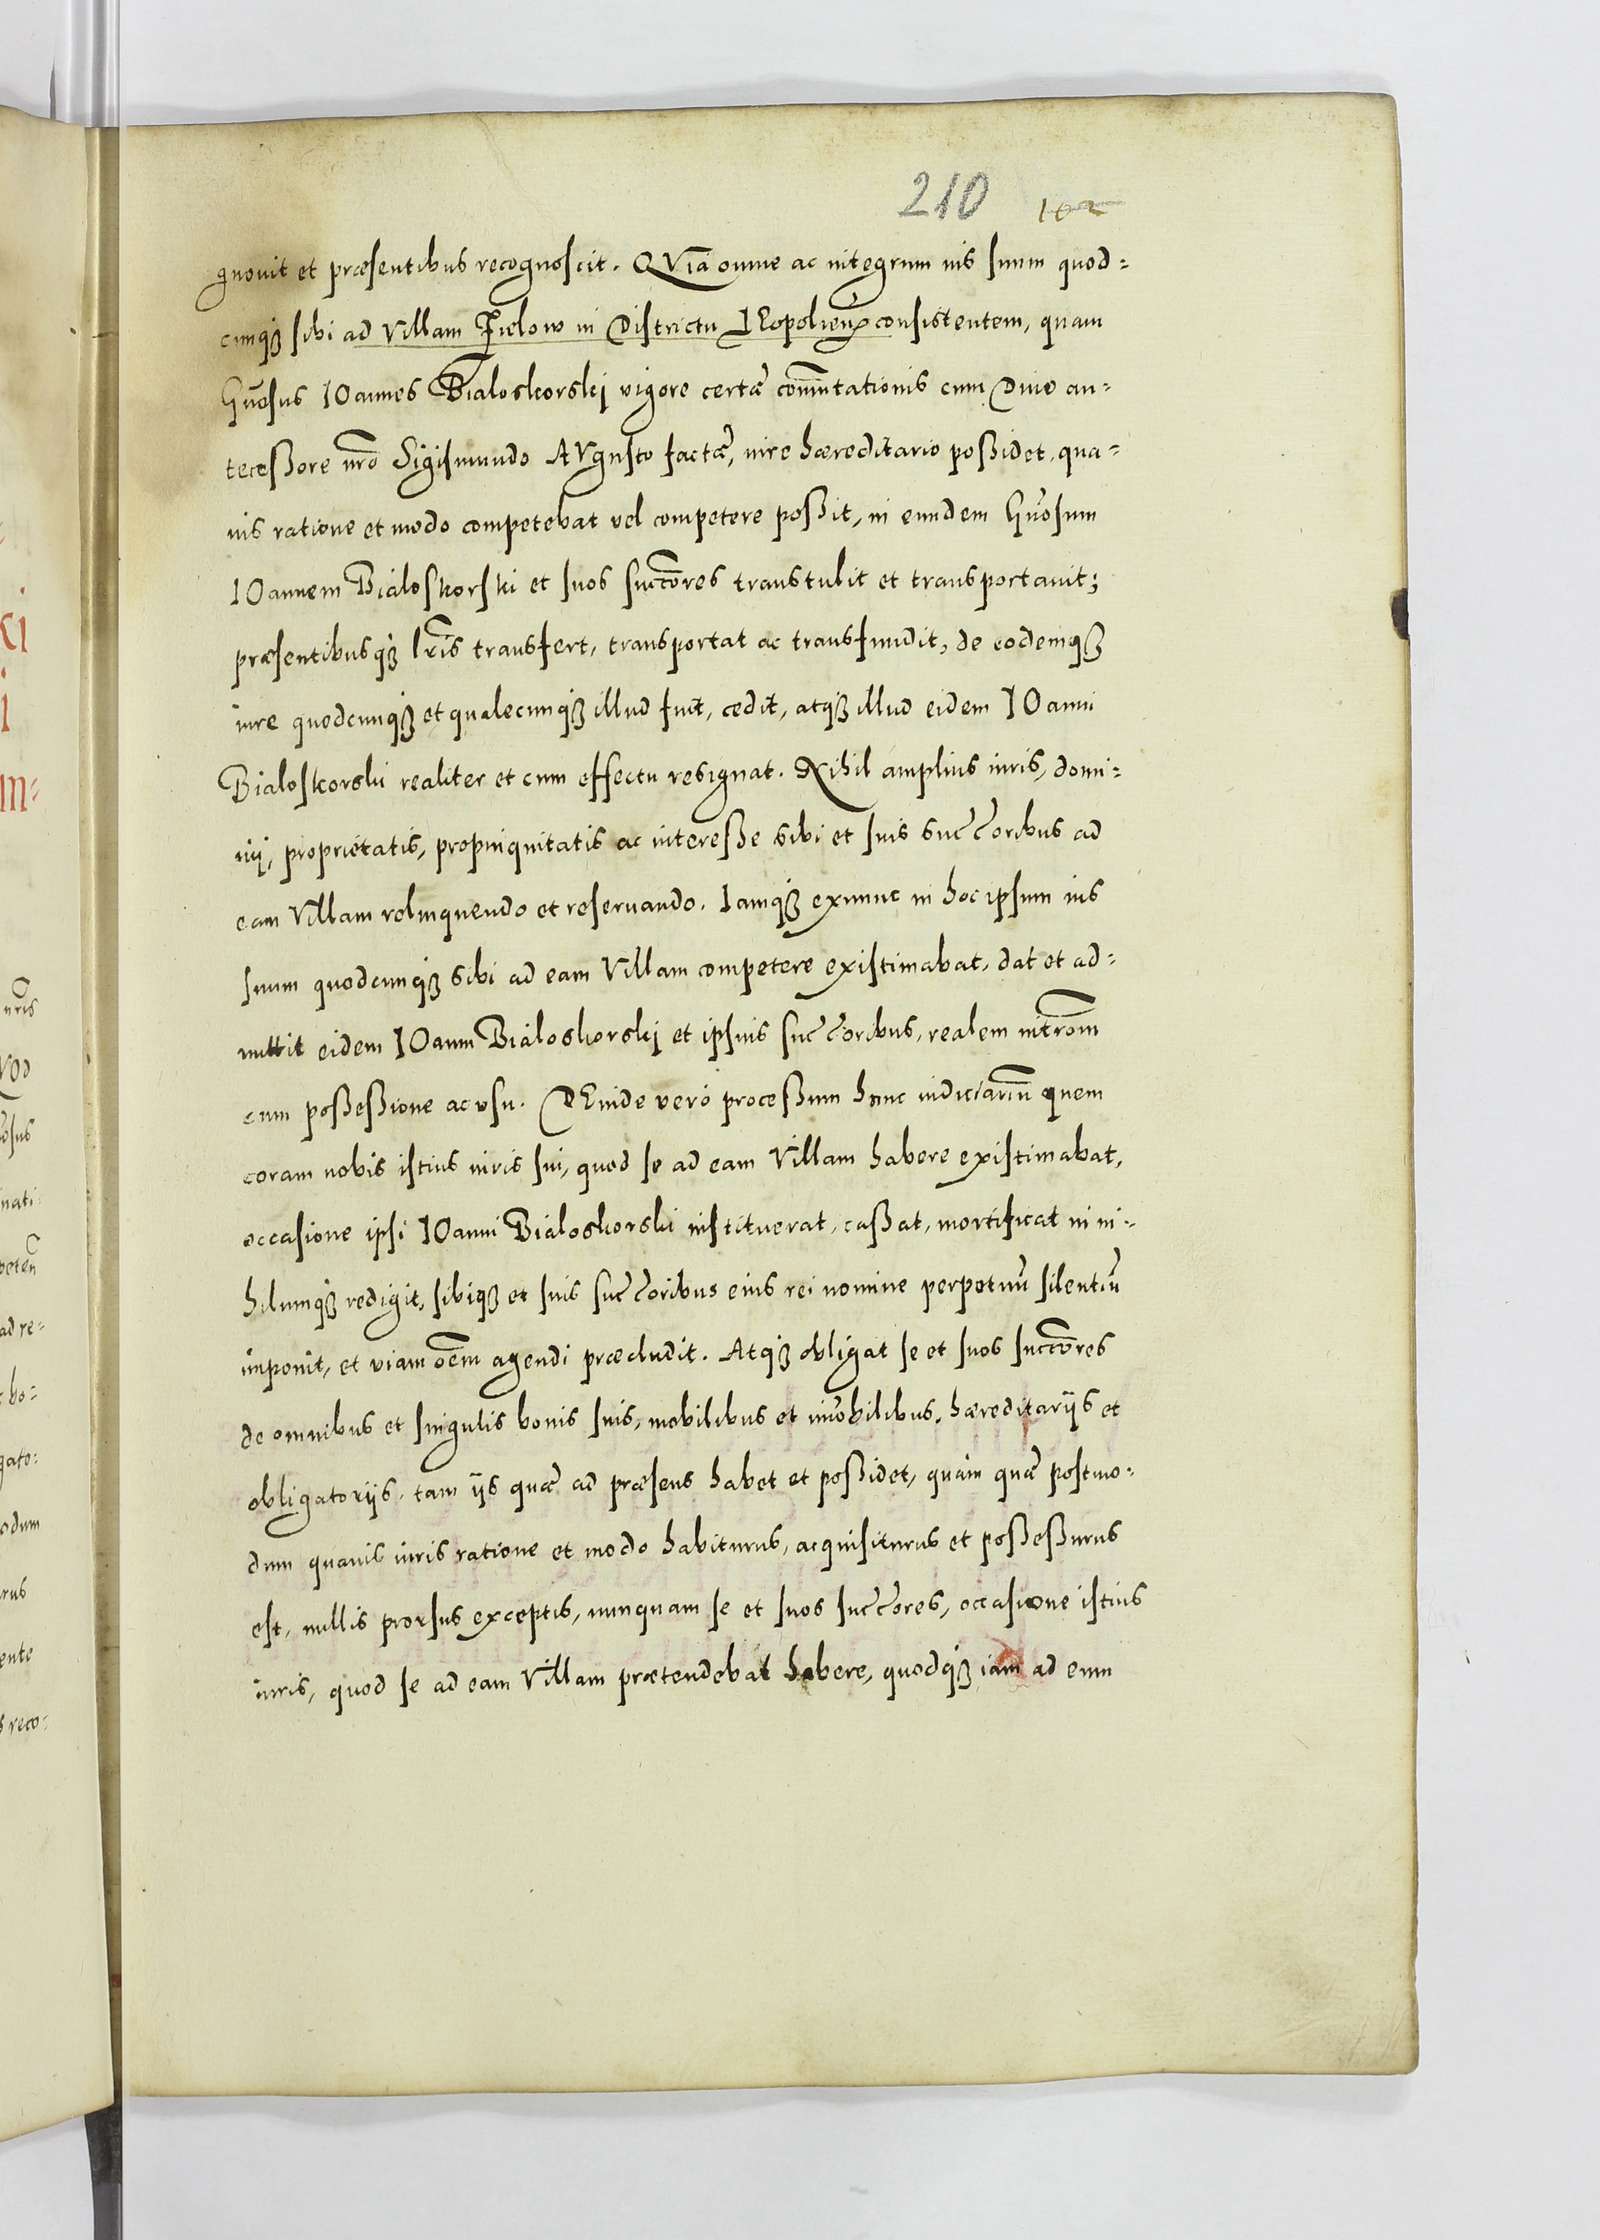 210 102
gnouit et præsentibus recognoscit. QVia omne ac integrum ius suum quod-
cunq3 sibi ad Villam in Districtu LEopolien̄ consistentem, quam
Gn̄osus IOannes Bialoskorskj vigore certæ com̄utationis cum Diuo an-
teceßore nr̄o Sigismundo AVgusto factæ, iure hæreditario poßidet, qua-
uis ratione et modo competebat vel competere poßit, in eundem Gn̄osum
IOannem Bialoskorski et suos succ̄ores transtulit et transportauit;
præsentibusq3 lr̄is transfert, transportat ac transfundit, de eodemq3
iure quodcunq3 et qualecunq3 illud fuit, cedit, atq3 illud eidem IOanni
Bialoskorski realiter et cum effectu resignat. Nihil amplius iuris, domi-
nij, proprietatis, propinquitatis ac intereße sibi et suis succ̄oribus ad
eam Villam relinquendo et reseruando. Iamq3 exnunc in hoc ipsum ius
suum quodcunq3 sibi ad eam Villam competere existimabat, dat et ad-
mittit eidem IOanni Bialoskorskj et ipsius succ̄oribus, realem intr̄om
cum poßeßione ac vsu. DEinde verò proceßum hunc iudiciariū quem
coram nobis istius iuris sui, quod se ad eam Villam habere existimabat,
occasione ipsi IOanni Bialoskorski instituerat, caßat, mortificat in ni-
hilumq3 redigit, sibiq3 et suis succ̄oribus eius rei nomine perpetuū silentiū
imponit, et viam oēm agendi præcludit. Atq3 obligat se et suos succ̄ores
de omnibus et singulis bonis suis, mobilibus et im̄obilibus, hæreditarijs et
obligatorijs, tam ijs quæ ad præsens habet et poßidet, quàm quæ postmo-
dum quauis iuris ratione et modo habiturus, acquisiturus et poßeßurus
est, nullis prorsus exceptis, nunquam se et suos succ̄ores, occasione istius
iuris, quod se ad eam Villam prætendebat habere, quodq3 iam ad eum